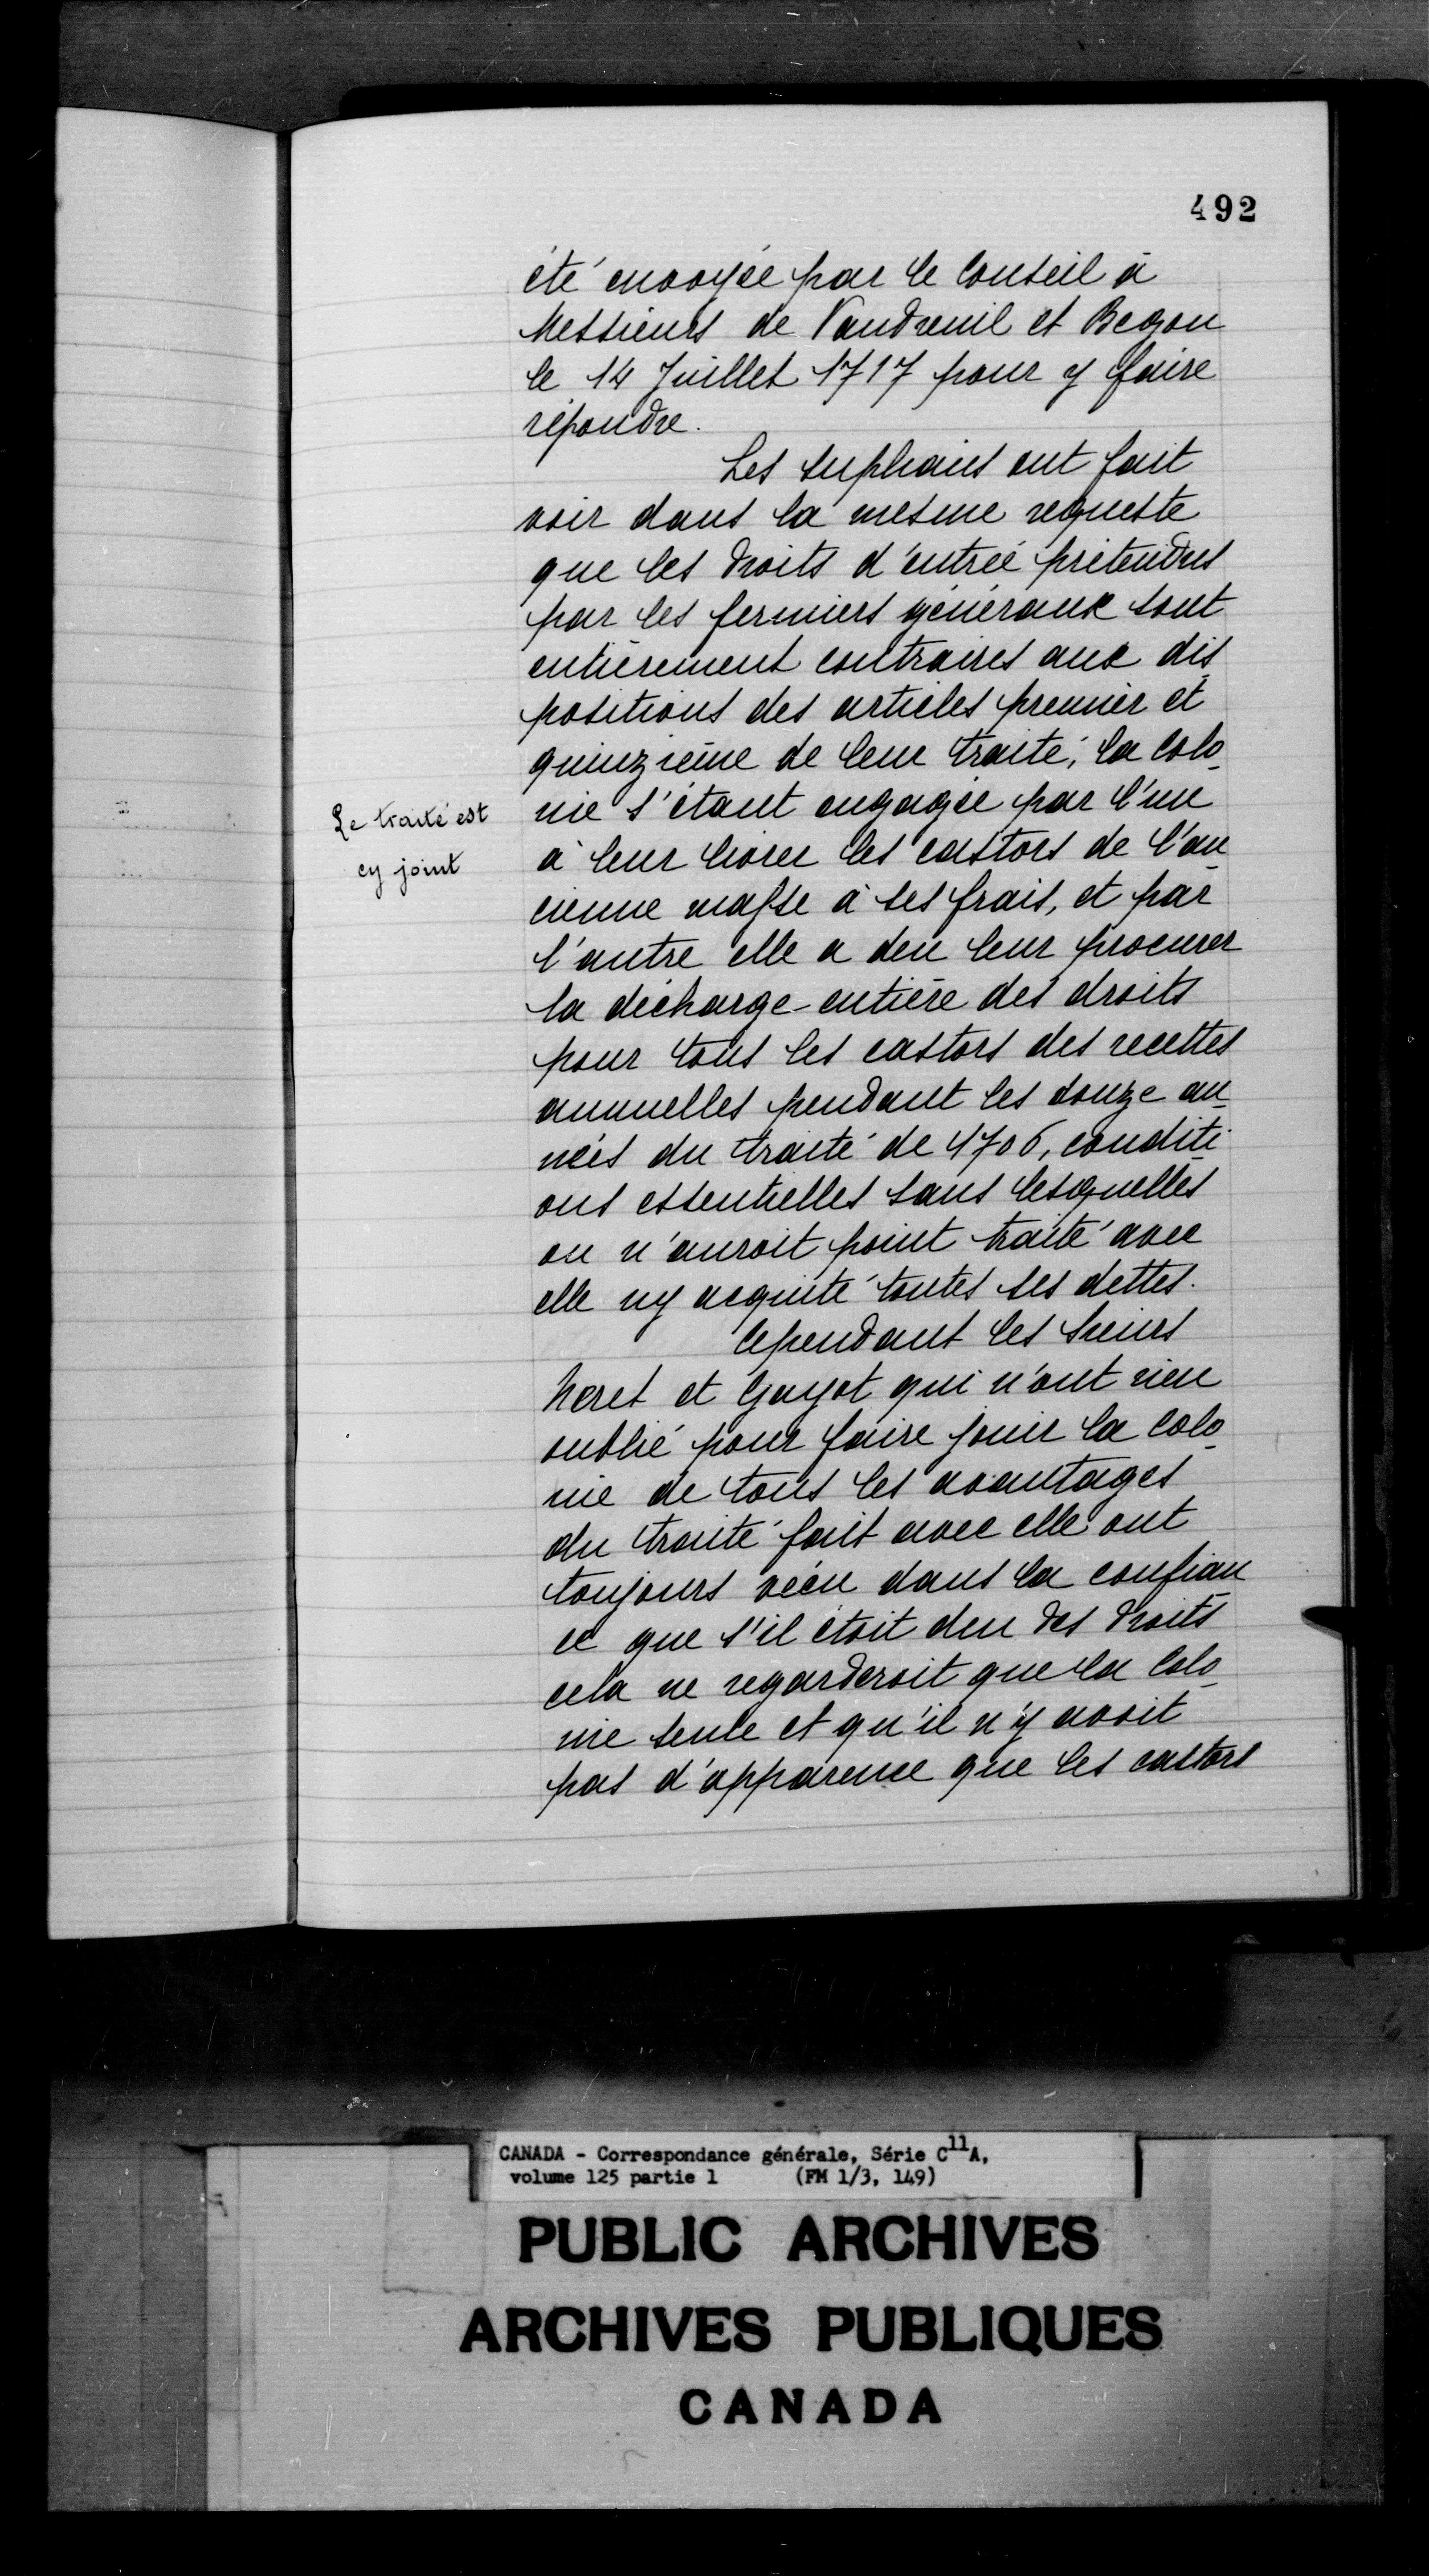 492
été envoyée par le Conseil à
Messieurs de Vaudreuil et Begon
le 14 Juillet 1717 pour y faire
répondre.
Les suplians ont fait
voir dans la mesme requeste
que les droits d'entrée prétendus
par les fermiers généraux sont
entièrement contraires aux dis
positions des articles premier et
quinzième de leur traité, la Colo
nie s'étant engagée par l'un
Le traité est
cy joint
à leur livrer les castors de l'an
cienne masse à ses frais, et par
l'autre elle a deu leur procurer
la décharge entière des droits
pour tous les castors des recettes
annuelles pendant les douze an
nées du traité de 1706, conditi
ons essentielles sans lesquelles
on n'auroit point traité avec
elle ny acquité toutes ses dettes.
Cependant les Sieurs
Neret et Gayot qui n'ont rien
oublié pour faire jouir la Colo
nie de tous les avantages
du traité fait avec elle ont
toujours vécu dans la confian
ce que s'il étoit deu des droits
cela ne regarderoit que la Colo
nie seule et qu'il n'y avoit
pas d'apparence que les castors
CANADA - Correspondance générale, Série C11A,
volume 125 partie 1 (FM 1/3, 149)
PUBLIC ARCHIVES
ARCHIVES PUBLIQUES
CANADA